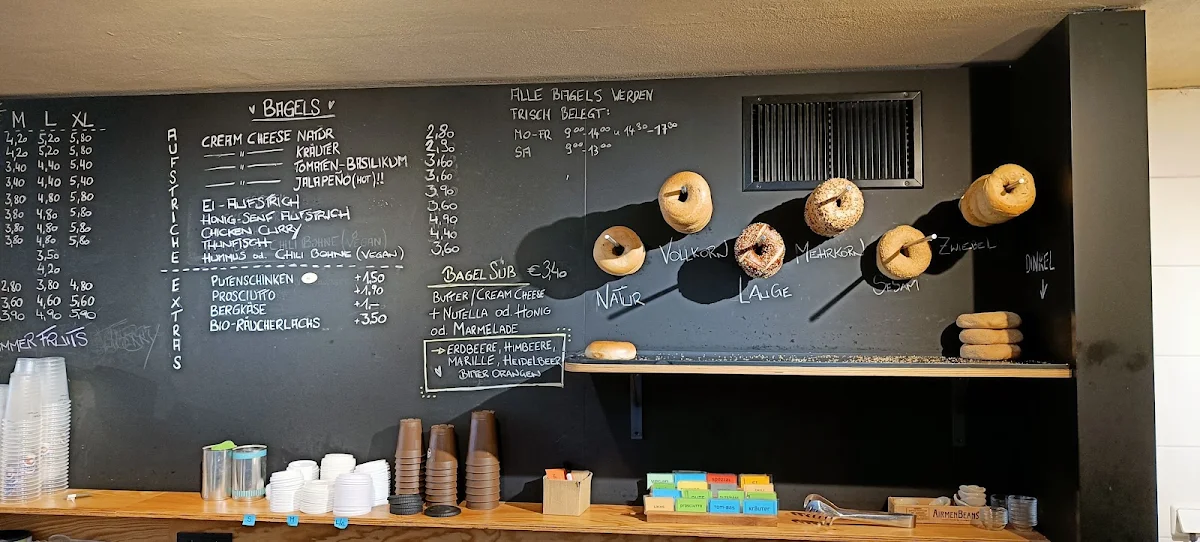 M L XL
4,20 5,20 5,80
4,20 5,20 5,80
3,40 4,40 5,40
3,40 4,40 5,40
3,80 4,80 5,80
3,80 4,80 5,80
3,80 4,80 5,80
3,50
4,20
2,80 3,80 4,80
3,60 4,60 5,60
3,90 4,90 5,90
MMER FRUITS
BAGELS
AUFSTRICHE
CREAM CHEESE NATUR 2,80
— " — KRÄUTER 2,90
— " — TOMATEN-BASILIKUM 3,60
— " — JALAPEÑO (HOT)!! 3,60
EI-AUFSTRICH 3,90
HONIG-SENF AUFSTRICH 3,60
CHICKEN CURRY 4,90
THUNFISCH CHILI BOHNE (VEGAN) 4,40
HUMMUS od. CHILI BOHNE (VEGAN) 3,60
EXTRAS
PUTENSCHINKEN +1,50
PROSCIUTTO +1,90
BERGKÄSE +1,–
BIO-RÄUCHERLACHS +3,50
BAGEL SÜß €3,40
BUTTER/CREAM CHEESE
+ NUTELLA od. HONIG
od. MARMELADE
→ ERDBEERE, HIMBEERE,
MARILLE, HEIDELBEER
BITTER ORANGEN
ALLE BAGELS WERDEN
FRISCH BELEGT:
MO-FR 9⁰⁰-14⁰⁰ u 14³⁰-17⁰⁰
SA 9⁰⁰-13⁰⁰
NATUR
VOLLKORN
LAUGE
MEHRKORN
SESAM
ZWIEBEL
DINKEL
↓
S
M
AIRMENBEANS